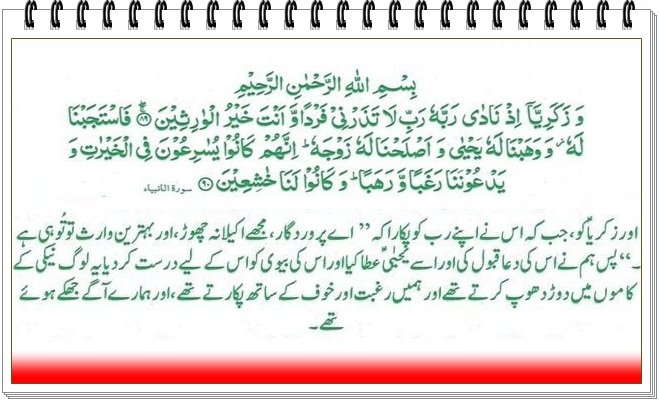 بِسْمِ اللهِ الرَّحْمٰنِ الرَّحِيْمِ
وَ زَكَرِيَّاۤ اِذْ نَادٰى رَبَّهٗ رَبِّ لَا تَذَرْنِیْ فَرْدًا وَّ اَنْتَ خَيْرُ الْوٰرِثِيْنَ ۚۖ﴿۸۹﴾ فَاسْتَجَبْنَا
لَهٗ ۫ وَ وَهَبْنَا لَهٗ يَحْيٰى وَ اَصْلَحْنَا لَهٗ زَوْجَهٗ ؕ اِنَّهُمْ كَانُوْا يُسٰرِعُوْنَ فِی الْخَيْرٰتِ وَ
يَدْعُوْنَنَا رَغَبًا وَّ رَهَبًا ؕ وَ كَانُوْا لَنَا خٰشِعِيْنَ ﴿۹۰﴾ سورۃ الانبیاء
اور زکریاؑ کو، جب کہ اس نے اپنے رب کو پکارا کہ ”اے پروردگار، مجھے اکیلا نہ چھوڑ، اور بہترین وارث تو تُو ہی ہے
۔“ پس ہم نے اس کی دعا قبول کی اور اسے یحییٰؑ عطا کیا اور اس کی بیوی کو اس کے لیے درست کر دیا یہ لوگ نیکی کے
کاموں میں دوڑ دھوپ کرتے تھے اور ہمیں رغبت اور خوف کے ساتھ پکارتے تھے، اور ہمارے آگے جھکے ہوئے
تھے۔